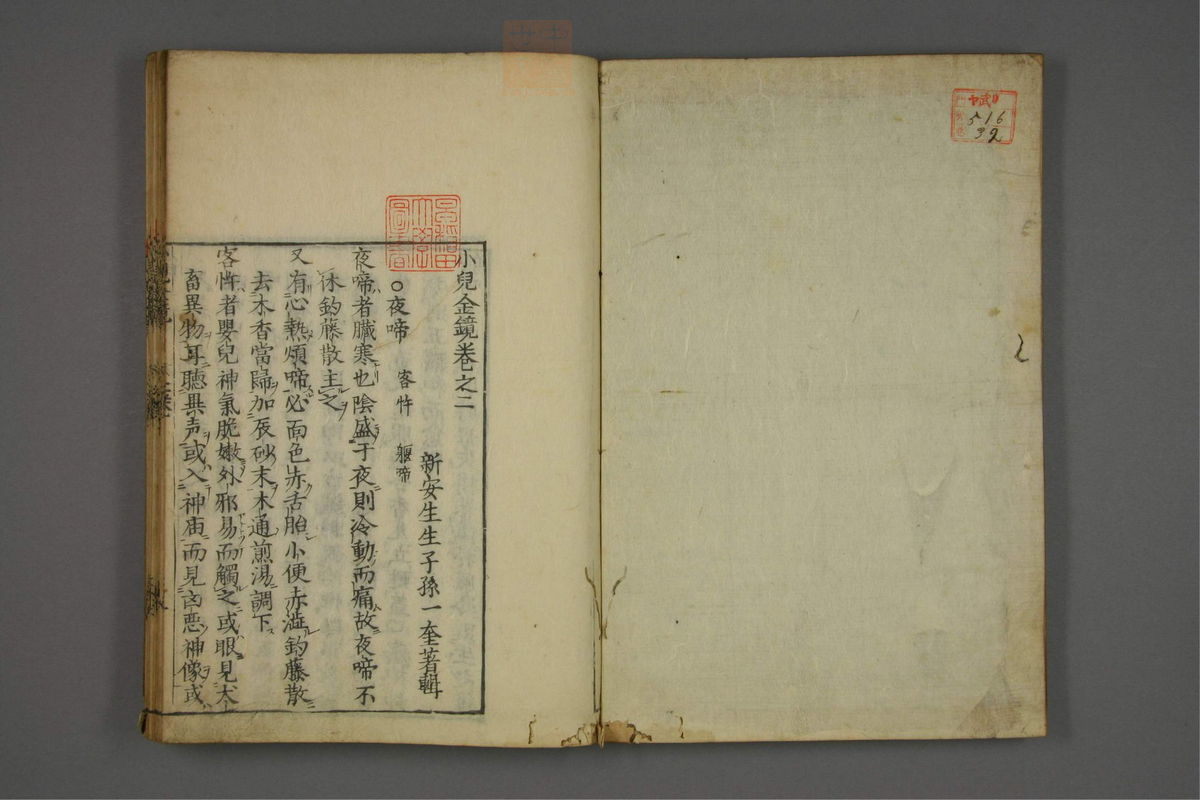 516
32
小兒金鏡卷之二
新安生生子孫一奎著輯
○夜啼 客忤 軀啼
夜啼者臟寒也陰盛于夜則冷動而痛故夜啼不
休鈎藤散主之
又有心熱煩啼必面色赤舌胎小便赤澁鈎藤散
去木香當歸加辰砂末木通煎湯調下
客忤者嬰兒神氣脆嫩外邪易而觸之或眼見犬
畜異物耳聽異声或入神庙而見凶悪神像或